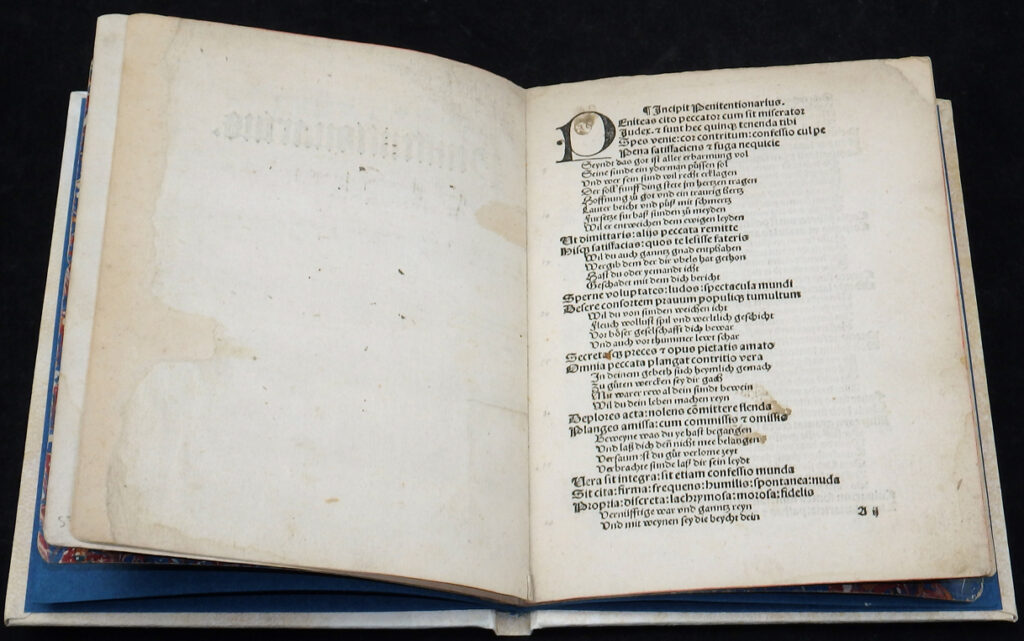 ¶Incipit Penitentionarius.
PEniteas cito peccator cum sit miserator
Iudex. ⁊ sunt hec quinqꝫ tenenda tibi
Spes venie: cor contritum: confessio culpe
Pena satisfaciens ⁊ fuga nequicie
Seyndt das got ist aller erbarmung vol
Seine sunde ein yderman püssen sol
Vnd wer sein sund wil recht erklagen
Der soll funff ding stete im hertzen tragen
Hoffnung zů got vnd ein traurig hertz
Lauter beicht vnd půß mit schmertz
Fursetze fur baß sunden zů meyden
Wil er entweichen dem ewigen leyden
Ut dimittaris: alijs peccata remitte
Hisqꝫ satisfacias: quos te lesisse fateris
Wil du auch ganntz gnad entpfahen
Vergib dem der dir vbels hat gethon
Hast du oder yemandt icht
Geschadet mit dem dich bericht
Sperne voluptates: ludos: spectacula mundi
Desere consortem prauum populiqꝫ tumultum
Wil du von sunden weichen icht
Fleuch wollust spil vnd werltlich geschicht
Vor bőser geselschafft dich bewar
Vnd auch vor thummer lewt schar
Secretasqꝫ preces ⁊ opus pietatis amato
Omnia peccata plangat contritio vera
In deinem gebeth such heymlich gemach
Zu gůten wercken sey dir gach
Mit warer rew al dein sundt bewein
Wil du dein leben machen reyn
Deplores acta: nolens cōmittere flenda
Planges amissa: cum commissis ⁊ omissis
Beweyne was du ye hast begangen
Vnd laß dich der nicht mee belangen
Versaumnist du gůt verlorne zeyt
Verbrachte sunde laß dir sein leydt
Uera sit integra: sit etiam confessio munda
Sit cita: firma: frequens: humilis: spontanea: nuda
Propria: discreta: lachrymosa: morosa: fidelis
Vernůfftige war vnd ganntz reyn
Vnd mit weynen sey die beycht dein
A ij